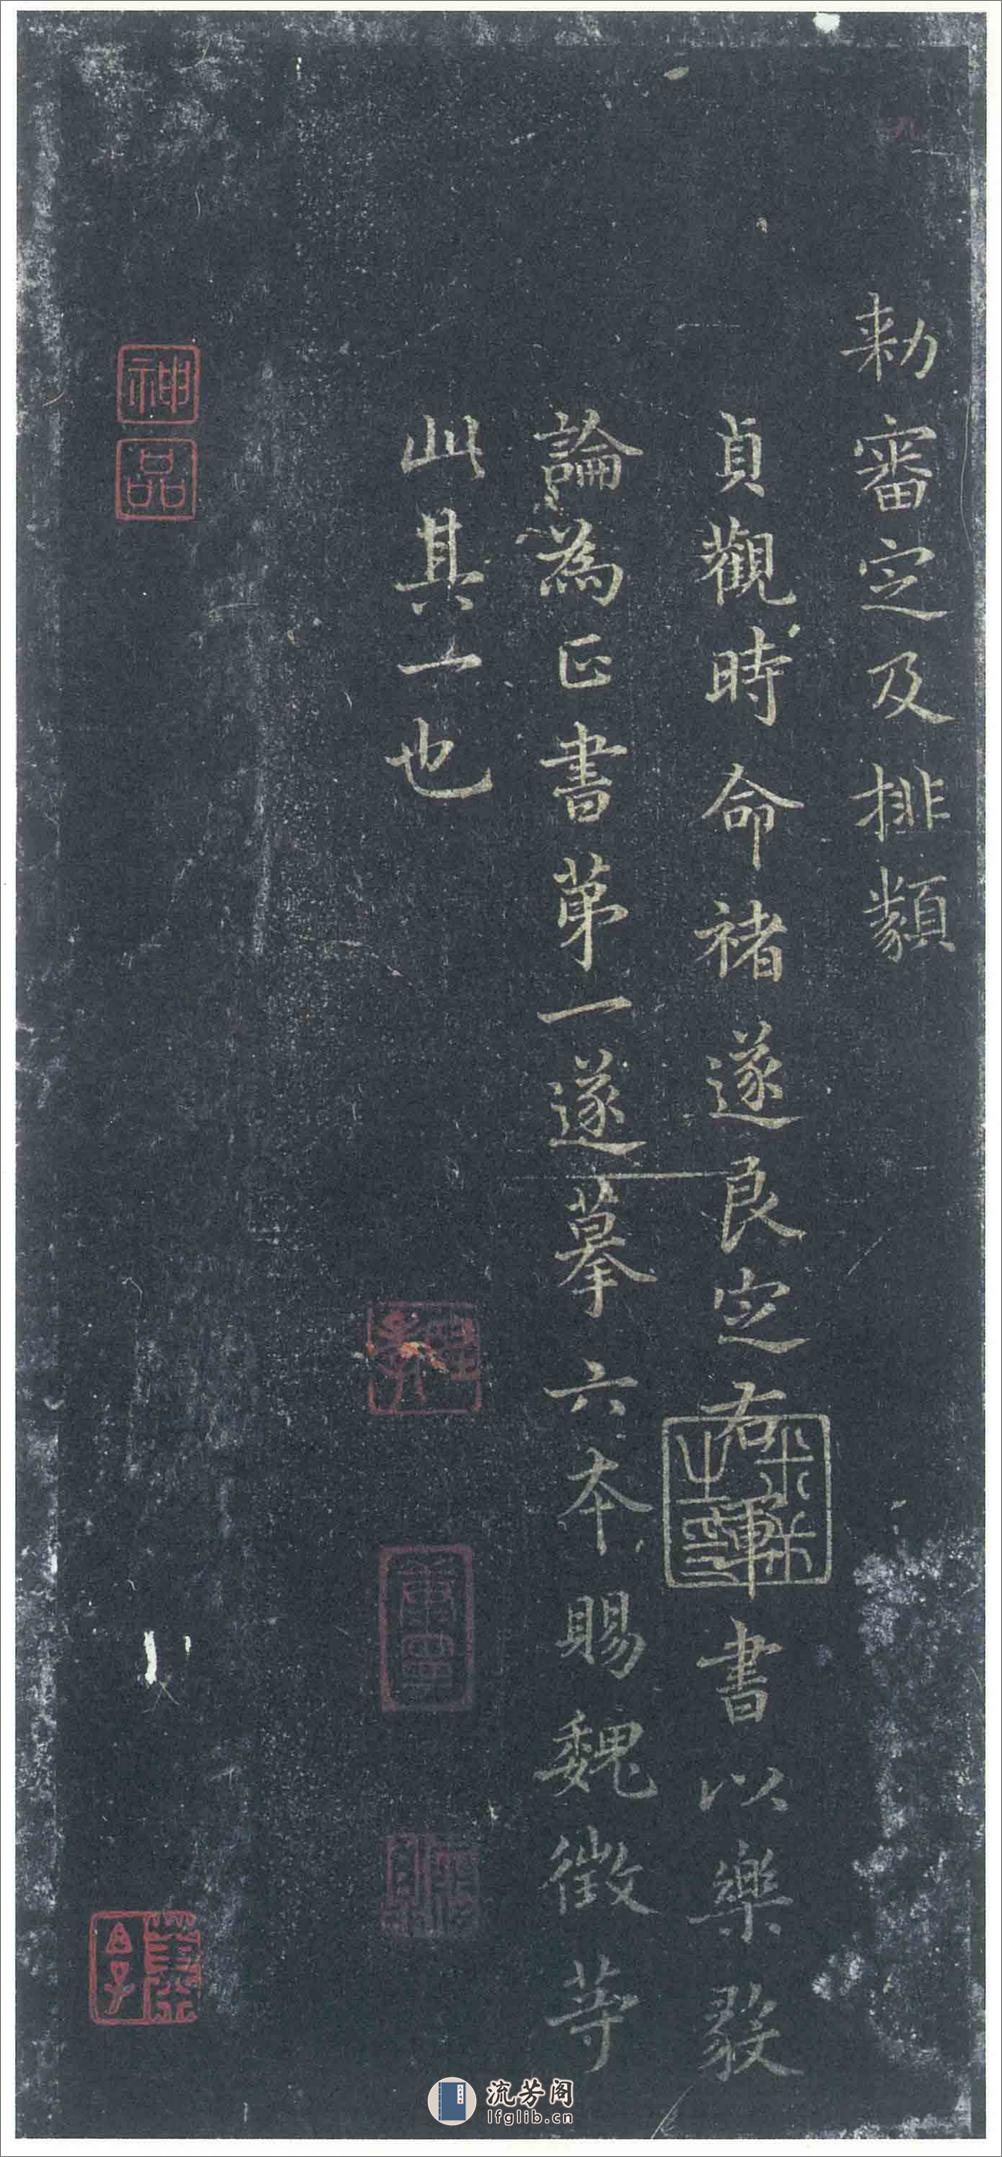 勅審定及排類
貞觀時命褚遂良定右軍書以樂毅
論為正書苐一遂摹六本賜魏徵等
此其一也
神品
米芾之印
流芳阁
lfglib.cn